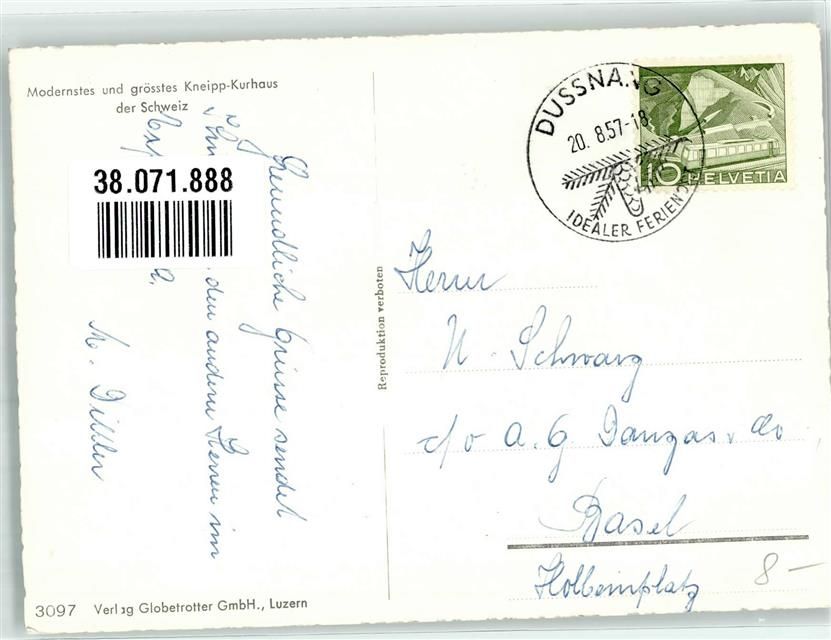 Modernstes und grösstes Kneipp-Kurhaus
der Schweiz
38.071.888
Freundliche Grüsse sendet
den andern Herren im
M. Dibler
Reproduktion verboten
DUSSNANG
20.8.57-18
IDEALER FERIENO
10 HELVETIA
Herrn
W. Schwarz
c/o A.G. Danzas & Co
Basel
Holbeinplatz
8 –
3097 Verlag Globetrotter GmbH., Luzern